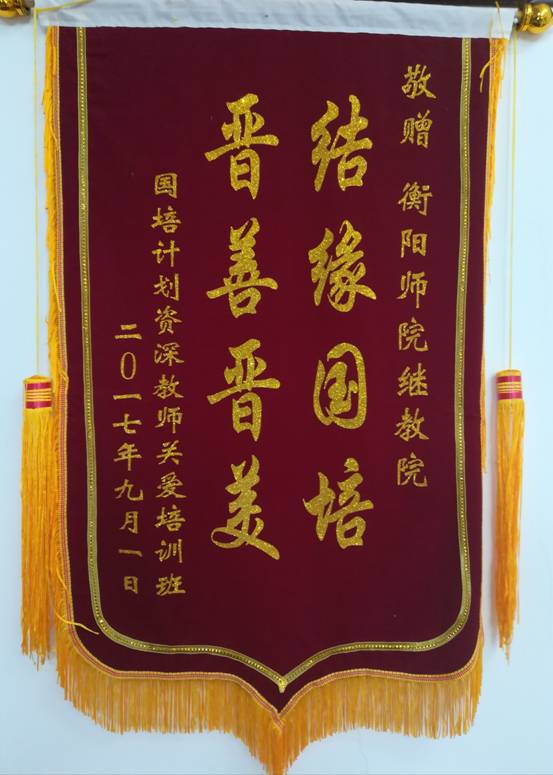 敬赠 衡阳师院继教院
结缘国培
晋善晋美
国培计划资深教师关爱培训班
二0一七年九月一日